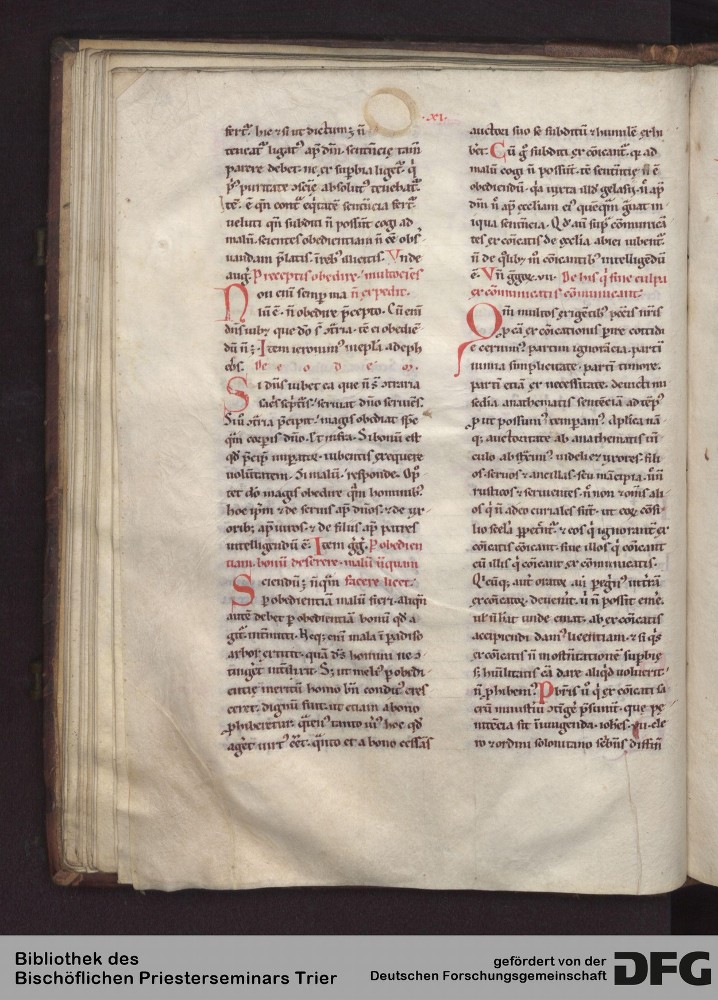 .xi.
fert᷑. hic & si ut dictum; n̄
teneat᷑ ligat᷒ ap̄ dm̄. sentencię tam̄
parere debet. ne ex supbia liget᷑. q̇
tē. ē qn̄ cont᷑ eq̇tatē sentēcia fert᷑.
ueluti qn̄ subditi n̄ possūt cogi ad
malū. scientes obedientiam n̄ eē obs᷑
uandam p̄latis. Vnde
aug᷑. Preceptis obedire. multociēs
Non enī semp ma n̄ expedit.
lū ē. n̄ obedire p̄cepto. Cū enī
dn̄s iubz que dō s̄ ɔt̄ria. tē ei obediē
dū n̄ ;. Item ieronim᷒ in eplā ad eph
eſos. De eodem.
Si dn̄s iubet ea que n̄ s̄ ɔtraria
sac̄s sc̄ptis. seruiat dn̄o seruus.
Si ū ɔt̄ria p̄cipit. magis obediat sp̄c
qm̄ corpis dn̄o. Et infra. Si bonū est
qd̄ p̄cip̄ impator. iubentis exequere
uolūtatem. Si malū. responde. Op᷒
tet dō magis obedire qm̄ hominib᷒.
hoc ip̄m & de seruis ap̄ dn̄os. & de ux
orib; ap̄ uiros. & de filiis ap̄ patres
intelligendū ē. Item g̊g᷑. Pobedien
tiam. bonū deserere. malū n̄quam
Sciendū; n̄qm̄ facere licet.
pobedientiā malū fieri. aliqn̄
autē debet pobedientiā bonū qd̄ a
git᷑ intmitti. Neq; enī mala ī padiso
arbor extitit. quā dS homini ne ɔ
tinget int̄dixit. S; ut meli᷒ pobedi
entię meritū homo bn̄ condit᷒ cres
ceret. dignū fuit. ut etiam a bono
phiberetur. q̇ten᷒ tanto ū᷒ hoc qd̄
aget. uirt᷒ eēt. q̇nto et a bono cessās
auctori suo se subditū & humilē exhi
bet. Cū g̊ subditi exɔicant᷑. q; ad
malū cogi n̄ possūt. tē sentētię n̄ ē
obediendū. q̇a iuxta illd̄ gelasii. n̄ ap̄
dm̄ n̄ ap̄ eccliam ei᷒ quēqm̄ g̊uat in
iqua sentēcia. Qd̄ aū sup̄ cōmunicā
tes exɔicatis de ęcclia abici iubent᷑.
n̄ de q̇lib; in ɔicantib᷒ intelligendū
ē. Vn̄ g̊gor. vii. De his q̇ sine culpa
excōmunicatis cōmunicant.
Qm̄ multos exigētib᷒ pēcīs nr̄is
p cā exɔicationis pire cottidi
e cernim᷒. partim ignorācia. partī
nimia simplicitate. partī timore.
partī etiā & necessitate. deuicti mi
sedia. anathematis sentēciā ad tēp᷒
put possum᷒ tempam᷒. Aplica nā
q; auctoritate ab anathematis uī
culo abstraim᷒. uidelic& uxores. fili
os. seruos & ancillas. seu mācipia. nn̄
rusticos & seruientes. & om̄s ali
os q̇ n̄ adeo curiales sūt. ut eoɻ cōsi
lio scelā ppetrēt᷑. & eos q̇ ignorant̄ ex
cōicatis cōicant. siue illos q̇ cōicant
cū illis q̇ cōicant excōmunicatis.
Q̇cūq; aut orator aū pegn᷒ in t̄rā
exɔicatoɻ. deuenit. ū n̄ possit eme.
ul n̄ hat unde emat. ab exɔicatis
accipiendi. dam᷒ licentiam. & si q̇s
exɔicatis n̄ ī ostentationē supbię
s; hūilitatis cā dare aliqd̄ uoluerit.
n̄ phibem᷒. Pbr̄is ū q̇ exɔicati sa
crū ministiū ɔtig̊e p̄sumt. que pe
nitēcia sit īiungenda. iohes. viii. cle
ro & ordini solonitano sc̄bns diffin̄
Bibliothek des
Bischöflichen Priesterseminars Trier
gefördert von der
Deutschen Forschungsgemeinschaft
DFG